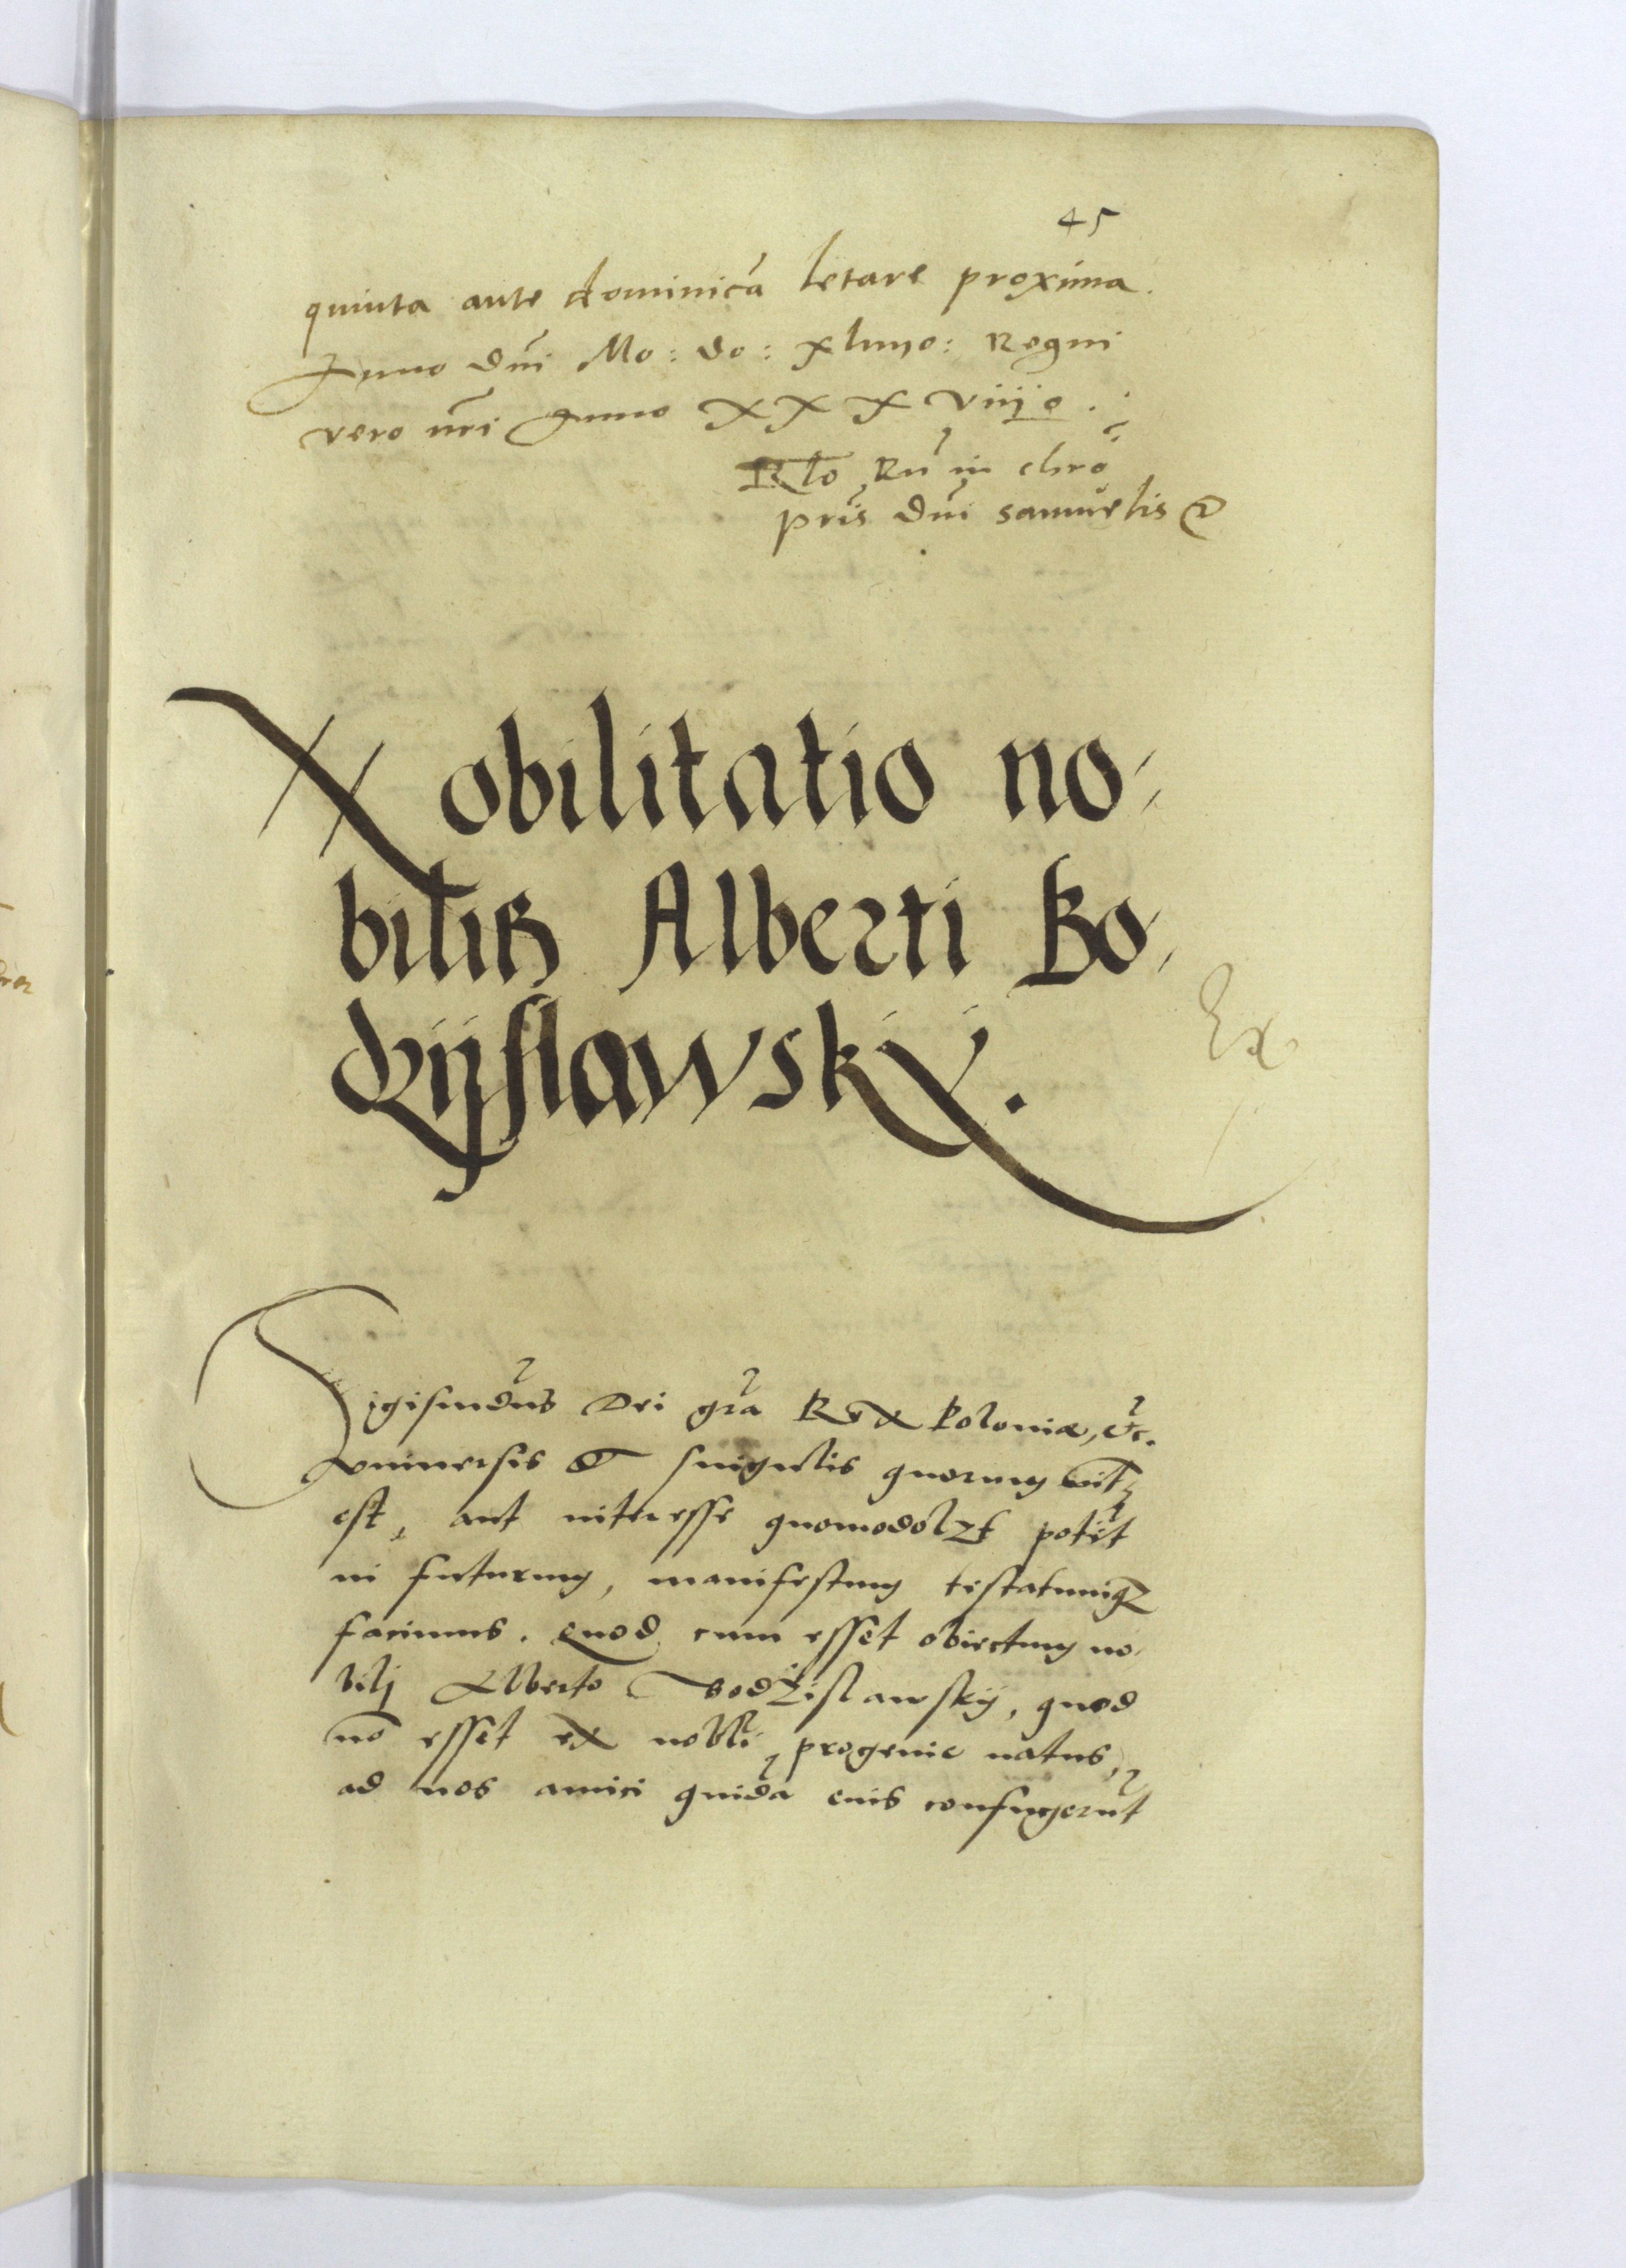 45
quinta ante dominicā letare proxima.
Anno dñi Mo: do: xlmo: Regni
vero nr̃i Anno XXX viijo.
Rlo Rñ in chrō
pris dñi samuelis
Nobilitatio no-
bilis Alberti Bo-
dzijslawskij.
Ex
Sigismūdus Dei gr̃a Rex Poloniæ, etc.
Vniuersis et singulis quorum int̃
est, aut interesse quomodolz poterit
in futurum, manifestum testatumqz
facimus. Quod cum esset obiectum no-
bilj Alberto Bodzislawskij, quod
nō esset ex nobli progenie natus,
ad nos amici quidā eius confugerūt